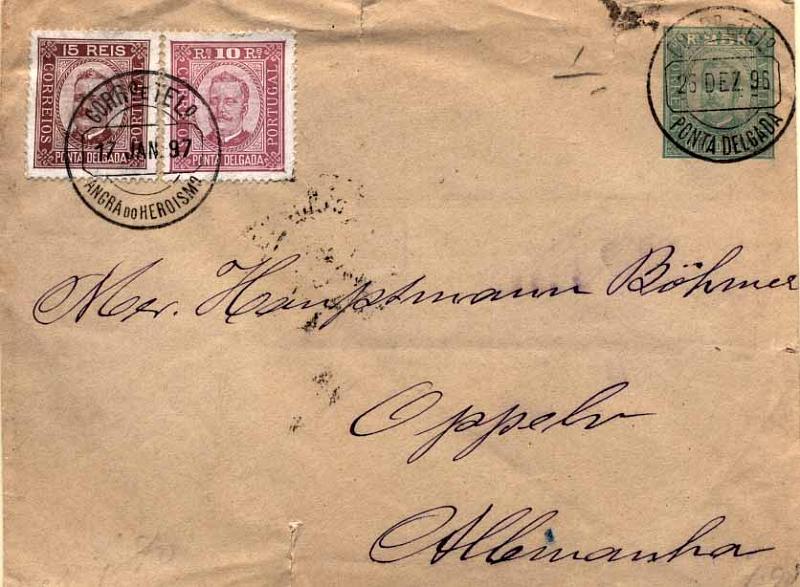 15 REIS
CORREIOS
PORTUGAL
PONTA DELGADA
Rs 10 Rs
PORTUGAL
PONTA DELGADA
CORRO E TELO
17 JAN. 97
ANGRA DO HEROISMO
26 DEZ. 96
PONTA DELGADA
Mer. Hauptmann Böhmer
Oppeln
Allemanha